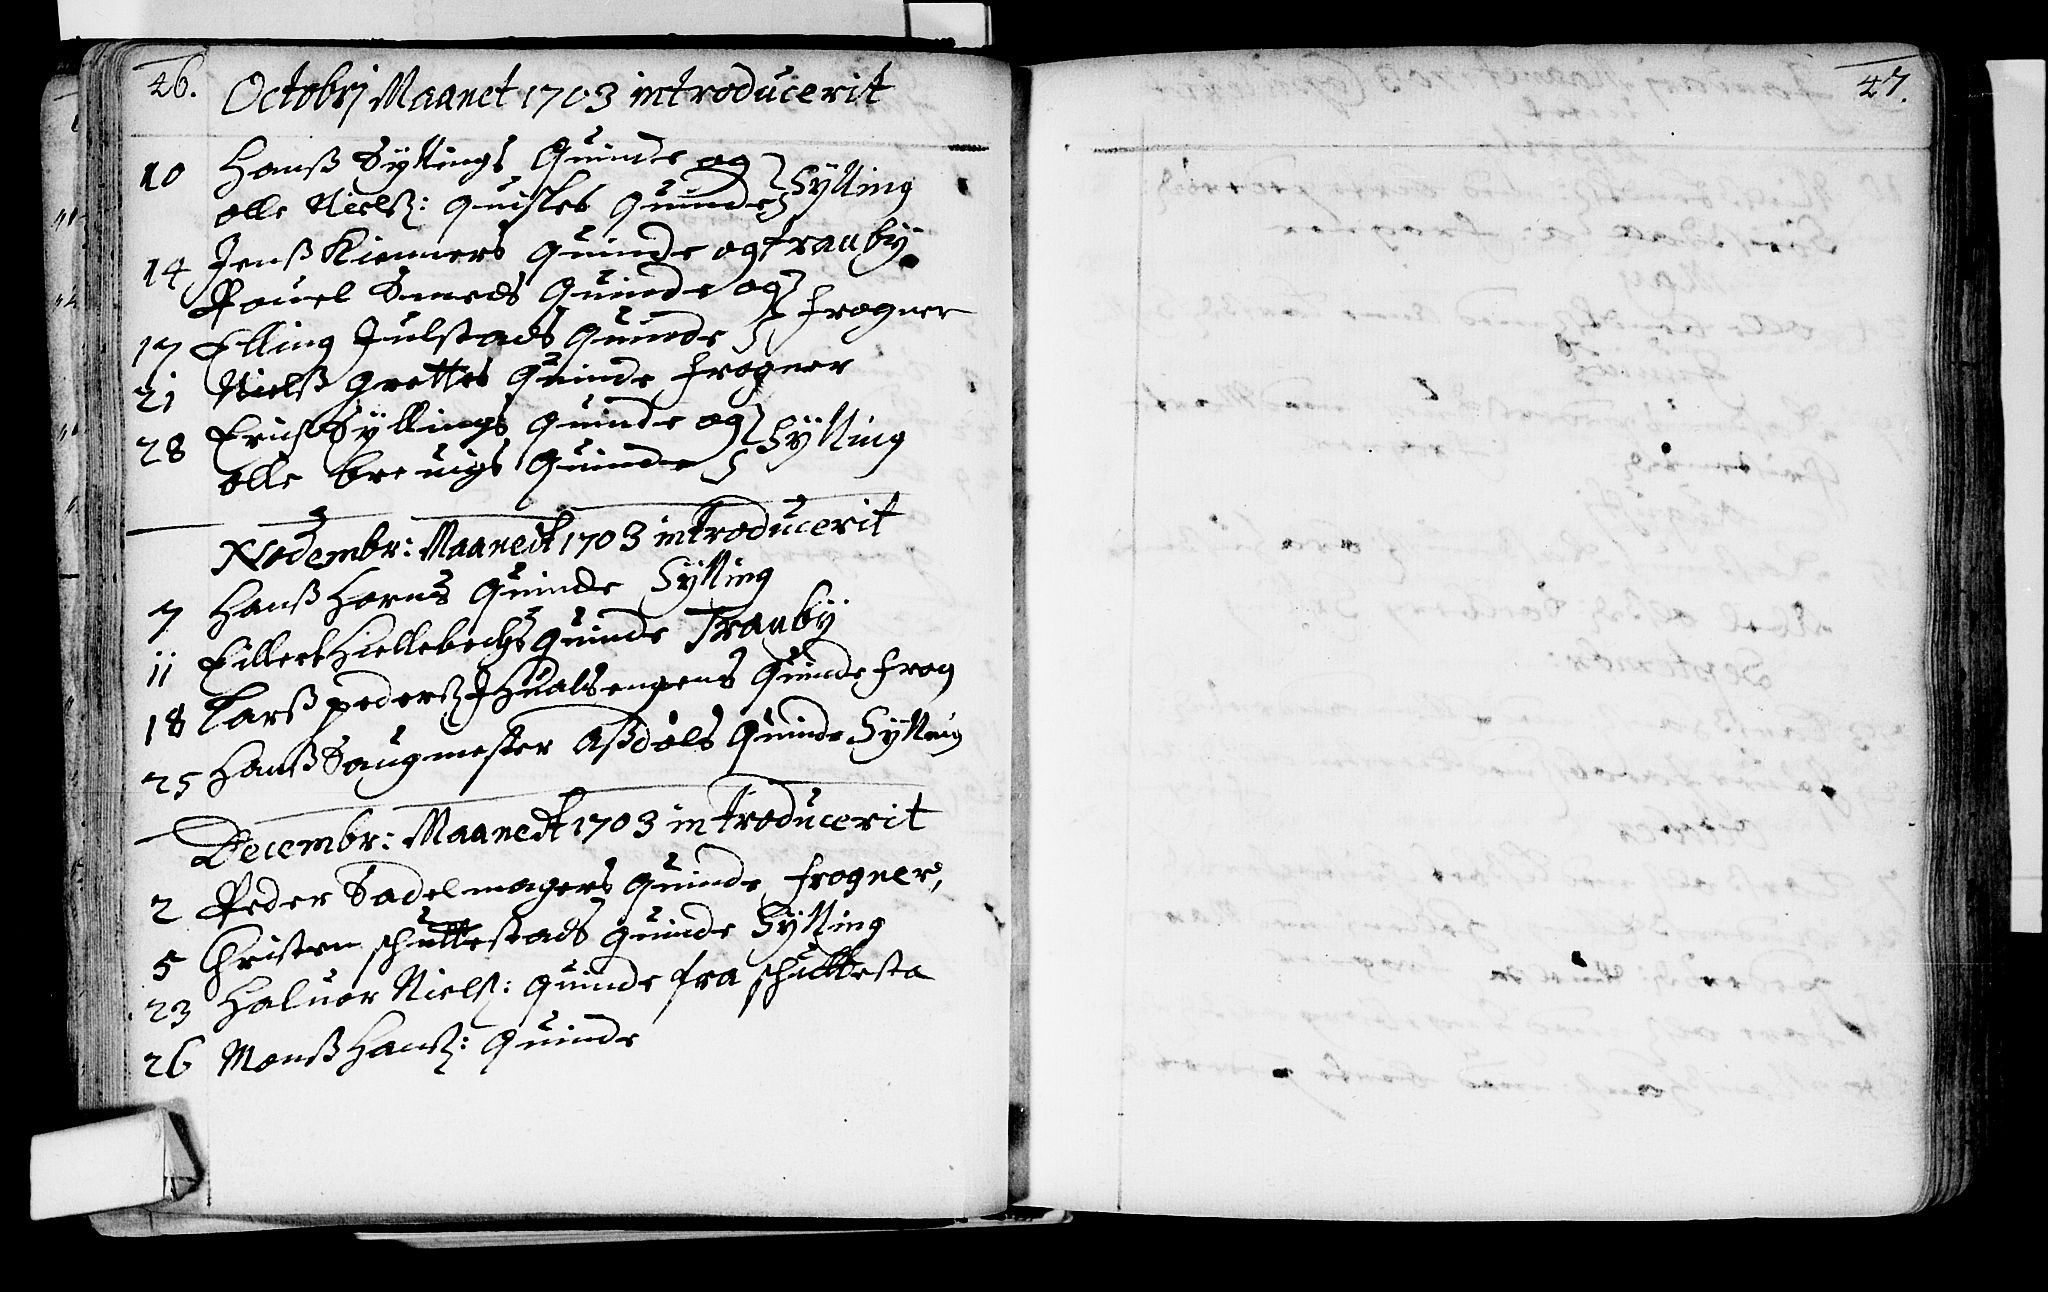 46.
Octobrj Maanet 1703 introducerit
10 Hanß Syllings Quinde og
olle Nielß: Quistes Quinde } Sylling
14 Jenß Kiemmers Quinde og Tranby
Pouel Smeds Quinde og
17 Elling Julstads Quinde } frogner
21 Nielß Grettes Quinde frogner
28 Erich Syllings Quinde og
olle bre uigs Quinde } Sylling
Novembr: Maanedt 1703 introducerit
7 Hanß Horns Quinde Sylling
11 Eillert Hiellebechs Quinde Tranby
18 Larß pederß Hualsengens Quinde frog
25 Hanß Saugmester Aßdøls Quinde Sylling
Decembr: Maanedt 1703 introducerit
2 Peder Sadelmagers Quinde frogner,
5 Christen schuttestads Quinde Sylling
23 Haluor Nielß: Quinde fra schuttesta
26 Monß Hanß: Quinde
47.